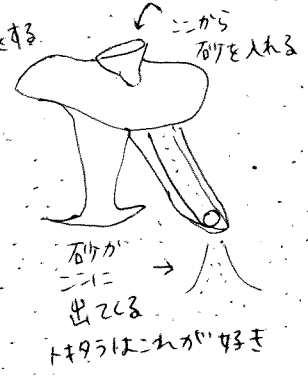 をする
ここから
砂を入れる
砂が
ここに
出てくる
トキタラはこれが好き